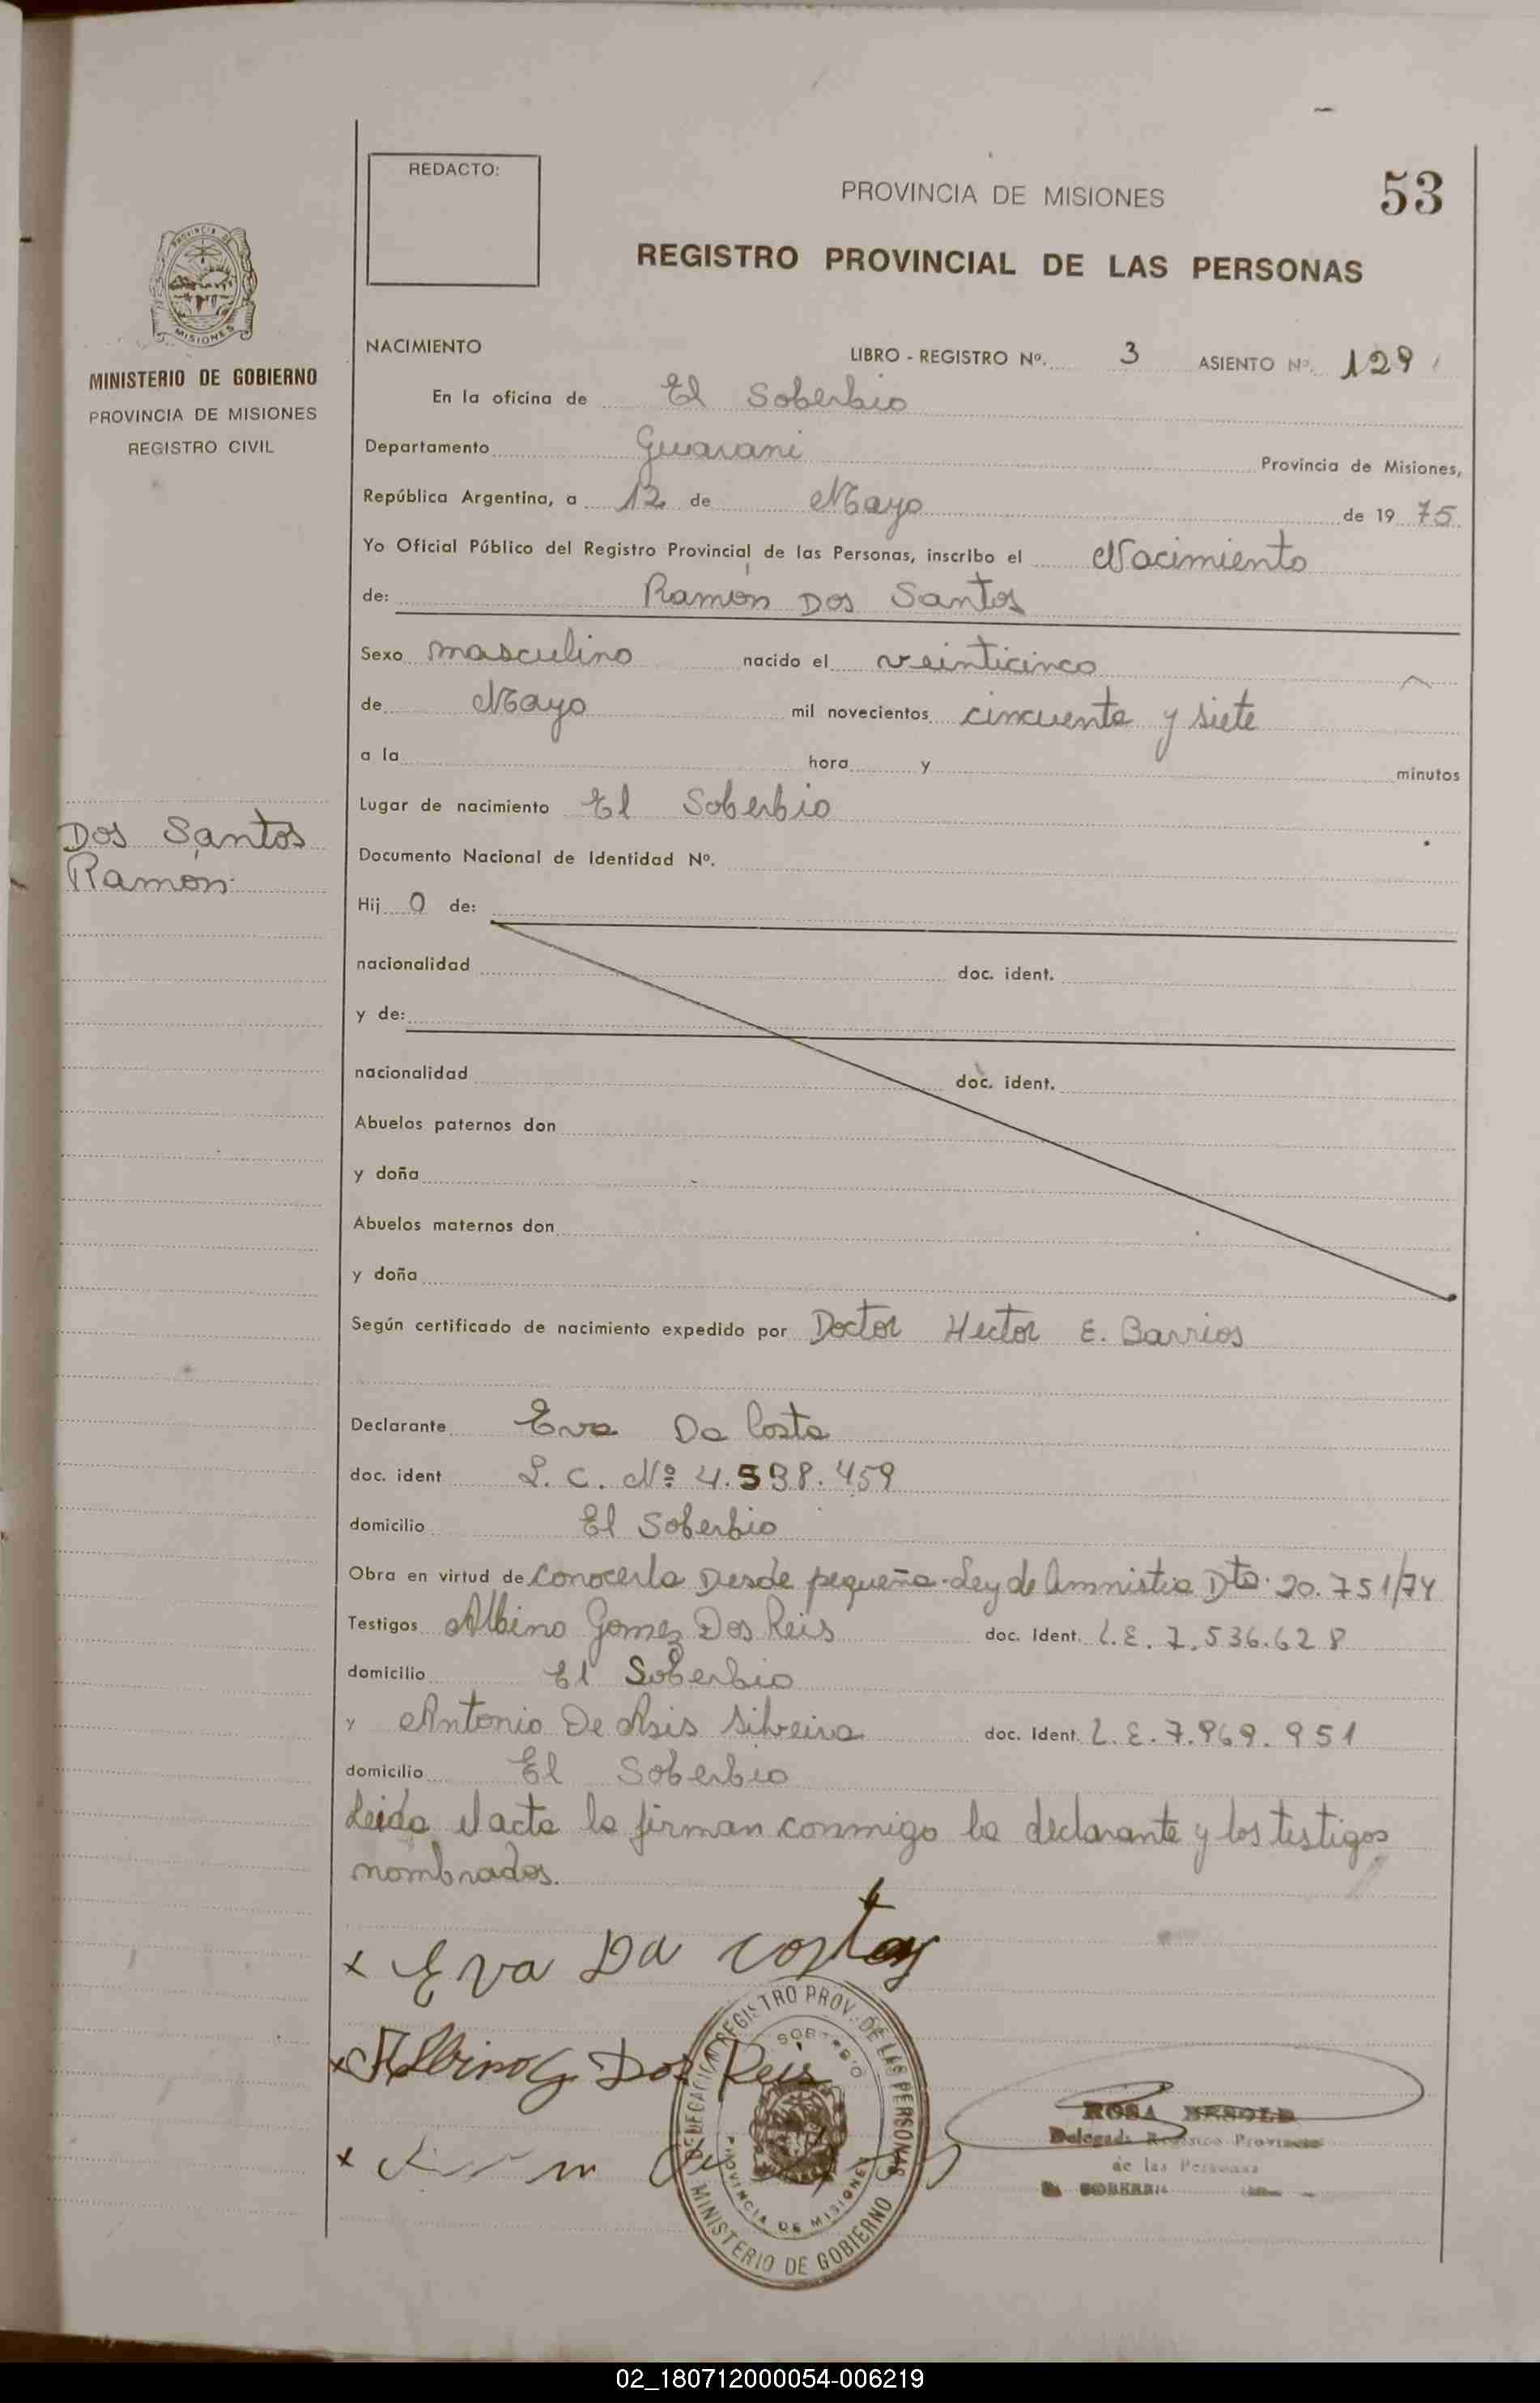 REDACTO:
PROVINCIA DE MISIONES
53
REGISTRO PROVINCIAL DE LAS PERSONAS
PROVINCIA DE
MISIONES
MINISTERIO DE GOBIERNO
PROVINCIA DE MISIONES
REGISTRO CIVIL
NACIMIENTO
LIBRO - REGISTRO Nº. 3 ASIENTO Nº. 129
En la oficina de El Soberbio
Departamento Guarani Provincia de Misiones,
República Argentina, a 12 de Mayo de 19 75
Yo Oficial Público del Registro Provincial de las Personas, inscribo el Nacimiento
de: Ramón Dos Santos
Sexo masculino nacido el veinticinco
de Mayo mil novecientos cincuenta y siete
a la hora y minutos
Lugar de nacimiento El Soberbio
Dos Santos
Ramón
Documento Nacional de Identidad Nº.
Hij O de:
nacionalidad doc. ident.
y de:
nacionalidad doc. ident.
Abuelos paternos don
y doña
Abuelos maternos don
y doña
Según certificado de nacimiento expedido por Doctor Hector E. Barrios
Declarante Eva Da Costa
doc. ident L. C. Nº 4.598.459
domicilio El Soberbio
Obra en virtud de Conocerla Desde pequeña - Ley de Amnistia Dto. 20.751/74
Testigos Albino Gomez Dos Reis doc. Ident. L.E. 7.536.628
domicilio El Soberbio
y Antonio De Asis Silveira doc. Ident. L.E. 7.969.951
domicilio El Soberbio
Leida el acta la firman conmigo la declarante y los testigos
nombrados.
x Eva Da Costa
x Albino G Dos Reis
x
DELEGACION REGISTRO PROV. DE LAS PERSONAS
SOBERBIO
PROVINCIA DE MISIONES
MINISTERIO DE GOBIERNO
ROSA BESOLD
Delegada Registro Provincial
de las Personas
SOBERBIO
02_180712000054-006219